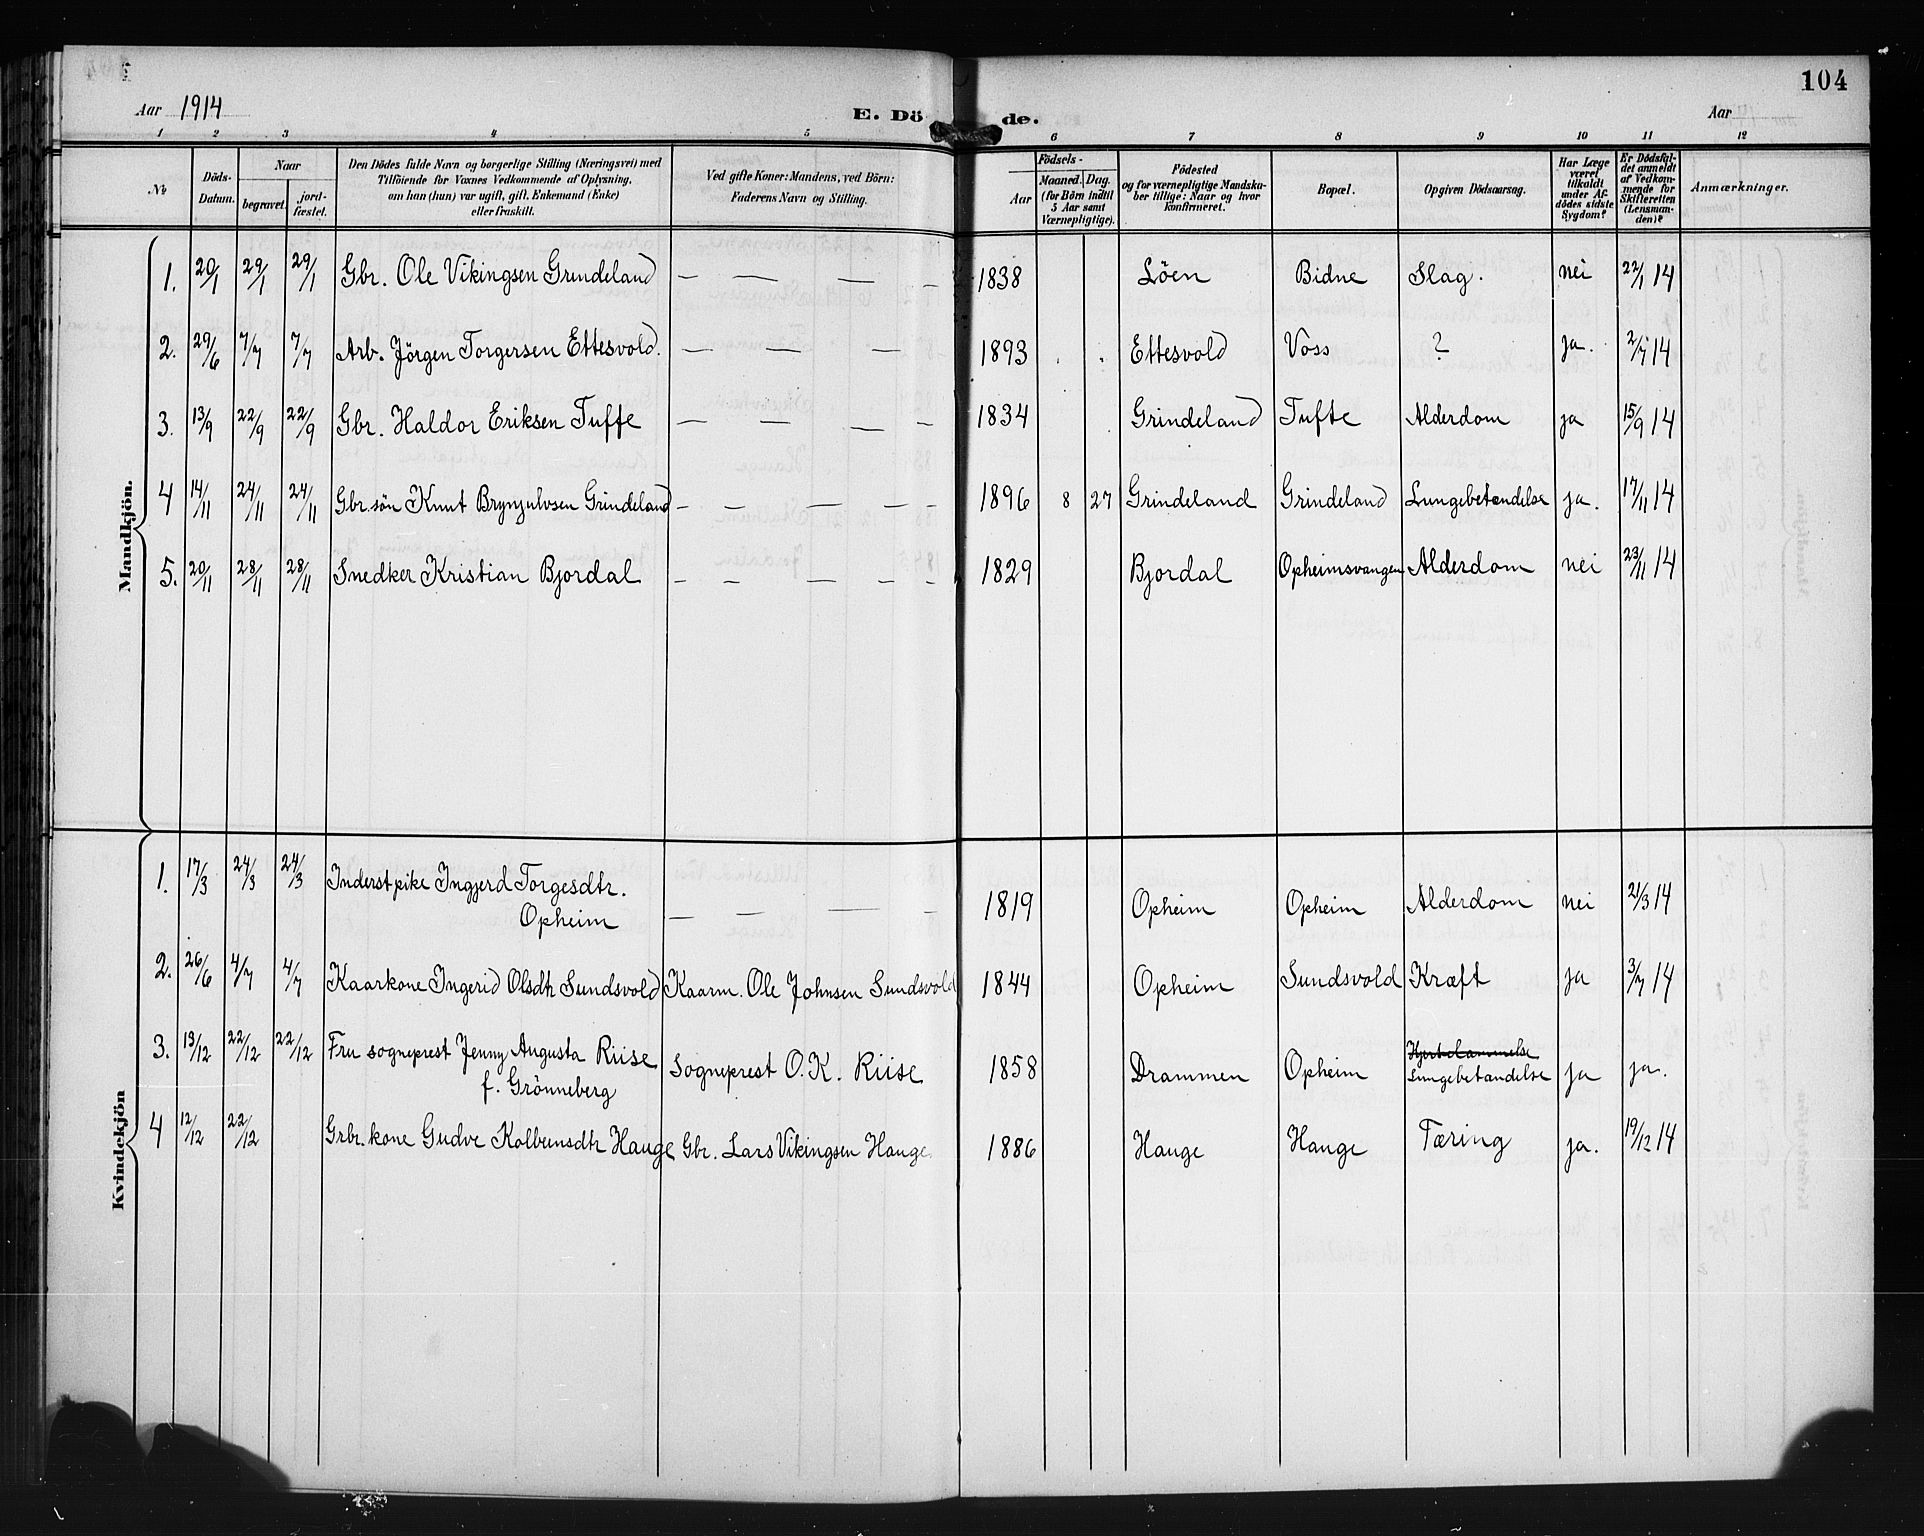 104
Aar 1914 E. Dö de. Aar
1 2 3 4 5 6 7 8 9 10 11 12
No
Döds-Datum.
Naar
begravet.
jord-fæstet.
Den Dödes fulde Navn og borgerlige Stilling (Næringsvei) med
Tilföiende for Voxnes Vedkommende af Oplysning,
om han (hun) var ugift, gift, Enkemand (Enke)
eller fraskilt.
Ved gifte Koner: Mandens, ved Börn:
Faderens Navn og Stilling.
Födsels-
Aar
Maaned. Dag.
(for Börn indtil
5 Aar samt
Værnepligtige).
Födested
og for værnepligtige Mandska-
ber tillige: Naar og hvor
konfirmeret.
Bopæl.
Opgiven Dödsaarsag.
Har Læge
været
tilkaldt
under Af-
dödes sidste
Sygdom?
Er Dödsfal-
det anmeldt
af Vedkom-
mende for
Skifteretten
(Lensman-
den)?
Anmærkninger.
Mandkjön.
1. 20/1 29/1 29/1 Gbr. Ole Vikingsen Grindeland — — — – 1838 Löen Bidne Slag. nei 22/1 14
2. 29/6 7/7 7/7 Arb. Jörgen Torgersen Ettesvold. — — — – 1893 Ettesvold Voss ? ja. 2/7 14
3. 13/9 22/9 22/9 Gbr. Haldor Eriksen Tufte — — — – 1834 Grindeland Tufte Alderdom ja 15/9 14
4 14/11 24/11 24/11 Gbr.sön Knut Brynjulvsen Grindeland – – – – – 1896 8 27 Grindeland Grindeland Lungebetendelse ja. 17/11 14
5. 20/11 28/11 28/11 Snedker Kristian Bjordal – – – – – 1829 Bjordal Opheimsvangen Alderdom nei 23/11 14
Kvindekjön
1. 17/3 24/3 24/3 Inderst pike Ingjerd Torgesdtr.
Opheim — — — – 1819 Opheim Opheim Alderdom nei 21/3 14
2. 26/6 4/7 4/7 Kaarkone Ingerid Olsdtr Sundsvold Kaarm. Ole Johnsen Sundsvold 1844 Opheim Sundsvold Kræft ja 3/7 14
3. 13/12 22/12 22/12 Fru sogneprest Jenny Augusta Riise
f. Grönneberg Sogneprest O.K. Riise 1858 Drammen Opheim Hjertelammelse
Lungebetandelse ja ja.
4 12/12 22/12 Grbr.kone Gudve Kolbeinsdtr Hauge Gbr. Lars Vikingsen Hauge. 1886 Hauge Hauge Tæring ja. 19/12 14